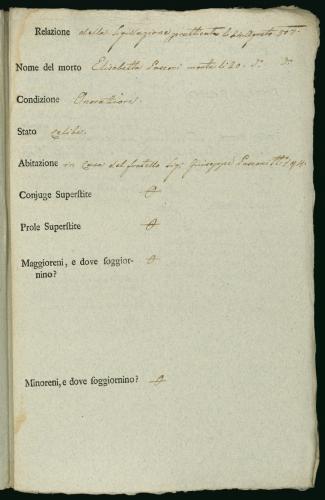 Relazione della Sigillazione pratticata li 24 Agosto 807.
Nome del morto Elisabetta morta li 20. do. do.
Condizione
Stato celibe.
Abitazione in casa del fratello Sigr. Giuseppe
Conjuge Superstite
Prole Superstite
Maggioreni, e dove soggior-
nino?
Minoreni, e dove soggiornino?